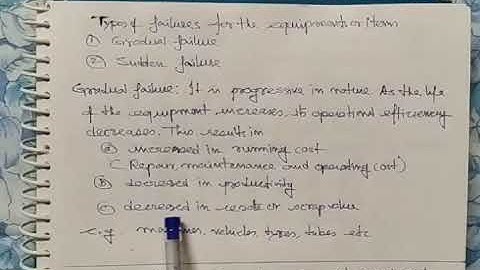 Types of failures for the equipments or item
① Gradual failure
② Sudden failure
Gradual failure: It is progressive in nature As the life
of the equipment increases its operational efficiency
decreases. This results in
ⓐ increased in running cost
(Repair, maintenance and operating cost)
ⓑ decreased in productivity
ⓒ decreased in resale or scrap value
e.g. machines, vehicles, tyres, tubes etc